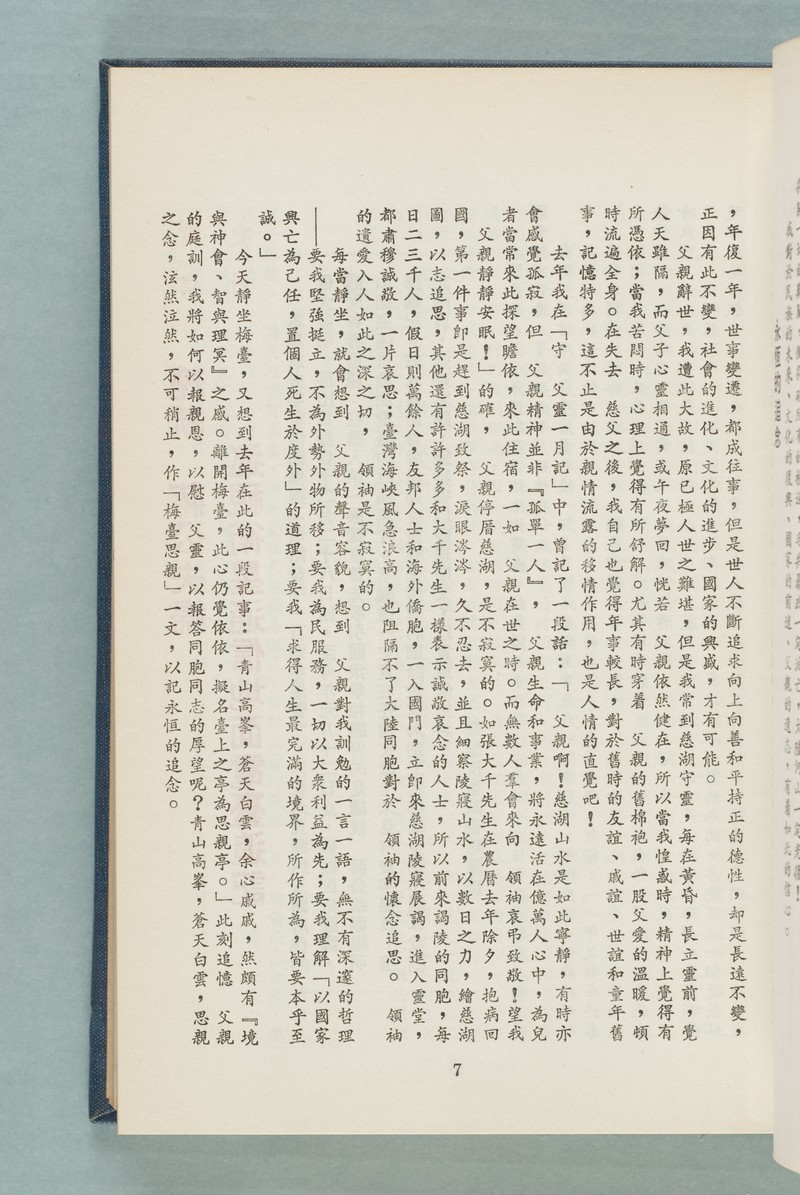 永恆的追念
，年復一年，世事變遷，都成往事，但是世人不斷追求向上向善和平持正的德性，却是長遠不變，
正因有此不變，社會的進化、文化的進步、國家的興盛，才有可能。
父親辭世，我遭此大故，原已極人世之難堪，但是我常到慈湖守靈，每在黃昏，長立靈前，覺
人天雖隔，而父子心靈相通，或午夜夢回，恍若　父親依然健在，所以當我惶惑時，精神上覺得有
所憑依；當我苦悶時，心理上覺得有所舒解。尤其有時穿着　父親的舊棉袍，一股父愛的溫暖，頓
時流遍全身。在失去　慈父之後，我自己也覺得年事較長，對於舊時的友誼、戚誼、世誼和童年舊
事，記憶特多，這不止是由於親情流露的移情作用，也是人情的直覺吧！
去年我在「守　父靈一月記」中，曾記了一段話：「　父親啊！慈湖山水是如此寧靜，有時亦
會感覺孤寂，但　父親精神並非『孤單一人』，　父親生命和事業，將永遠活在億萬人心中，為兒
者當常來此探望瞻依，來此住宿，一如　父親在世之時。而無數人羣會來向　領袖哀弔致敬！望我
父親靜靜安眠！」的確，　父親停厝慈湖，是不寂寞的。如張大千先生在農曆去年除夕，抱病回
國，第一件事即是趕到慈湖致祭，淚眼涔涔，久不忍去，並且細察陵寢山水，以數日之力，繪慈湖
圖，以志追思，其他還有許許多多和大千先生一樣表示誠敬哀念的人士，所以前來謁陵的同胞，每
日二三千人，假日則萬餘人，友邦人士和海外僑胞，一入國門，立即來慈湖陵寢展謁，進入靈堂，
都肅穆誠敬，一片哀思；臺灣海峽風急浪高，也阻隔不了大陸同胞對於　領袖的懷念追思。　領袖
的遺愛入人如此之深之切，　領袖是不寂寞的。
每當靜坐，就會想到　父親的聲音容貌，想到　父親對我訓勉的一言一語，無不有深邃的哲理
——要我堅強挺立，不為外勢外物所移；要我為民服務，一切以大衆利益為先；要我理解「以國家
興亡為己任，置個人死生於度外」的道理；要我「求得人生最完滿的境界，所作所為，皆要本乎至
誠。」
今天靜坐梅臺，又想到去年在此的一段記事：「青山高峯，蒼天白雲，余心戚戚，然頗有『境
與神會、智與理冥』之感。離開梅臺，此心仍覺依依，擬名臺上之亭為思親亭。」此刻追憶　父親
的庭訓，我將如何以報親恩，以慰　父靈，以報答同胞同志的厚望呢？青山高峯，蒼天白雲，思親
之念，泫然泣然，不可稍止，作「梅臺思親」一文，以記永恒的追念。
7